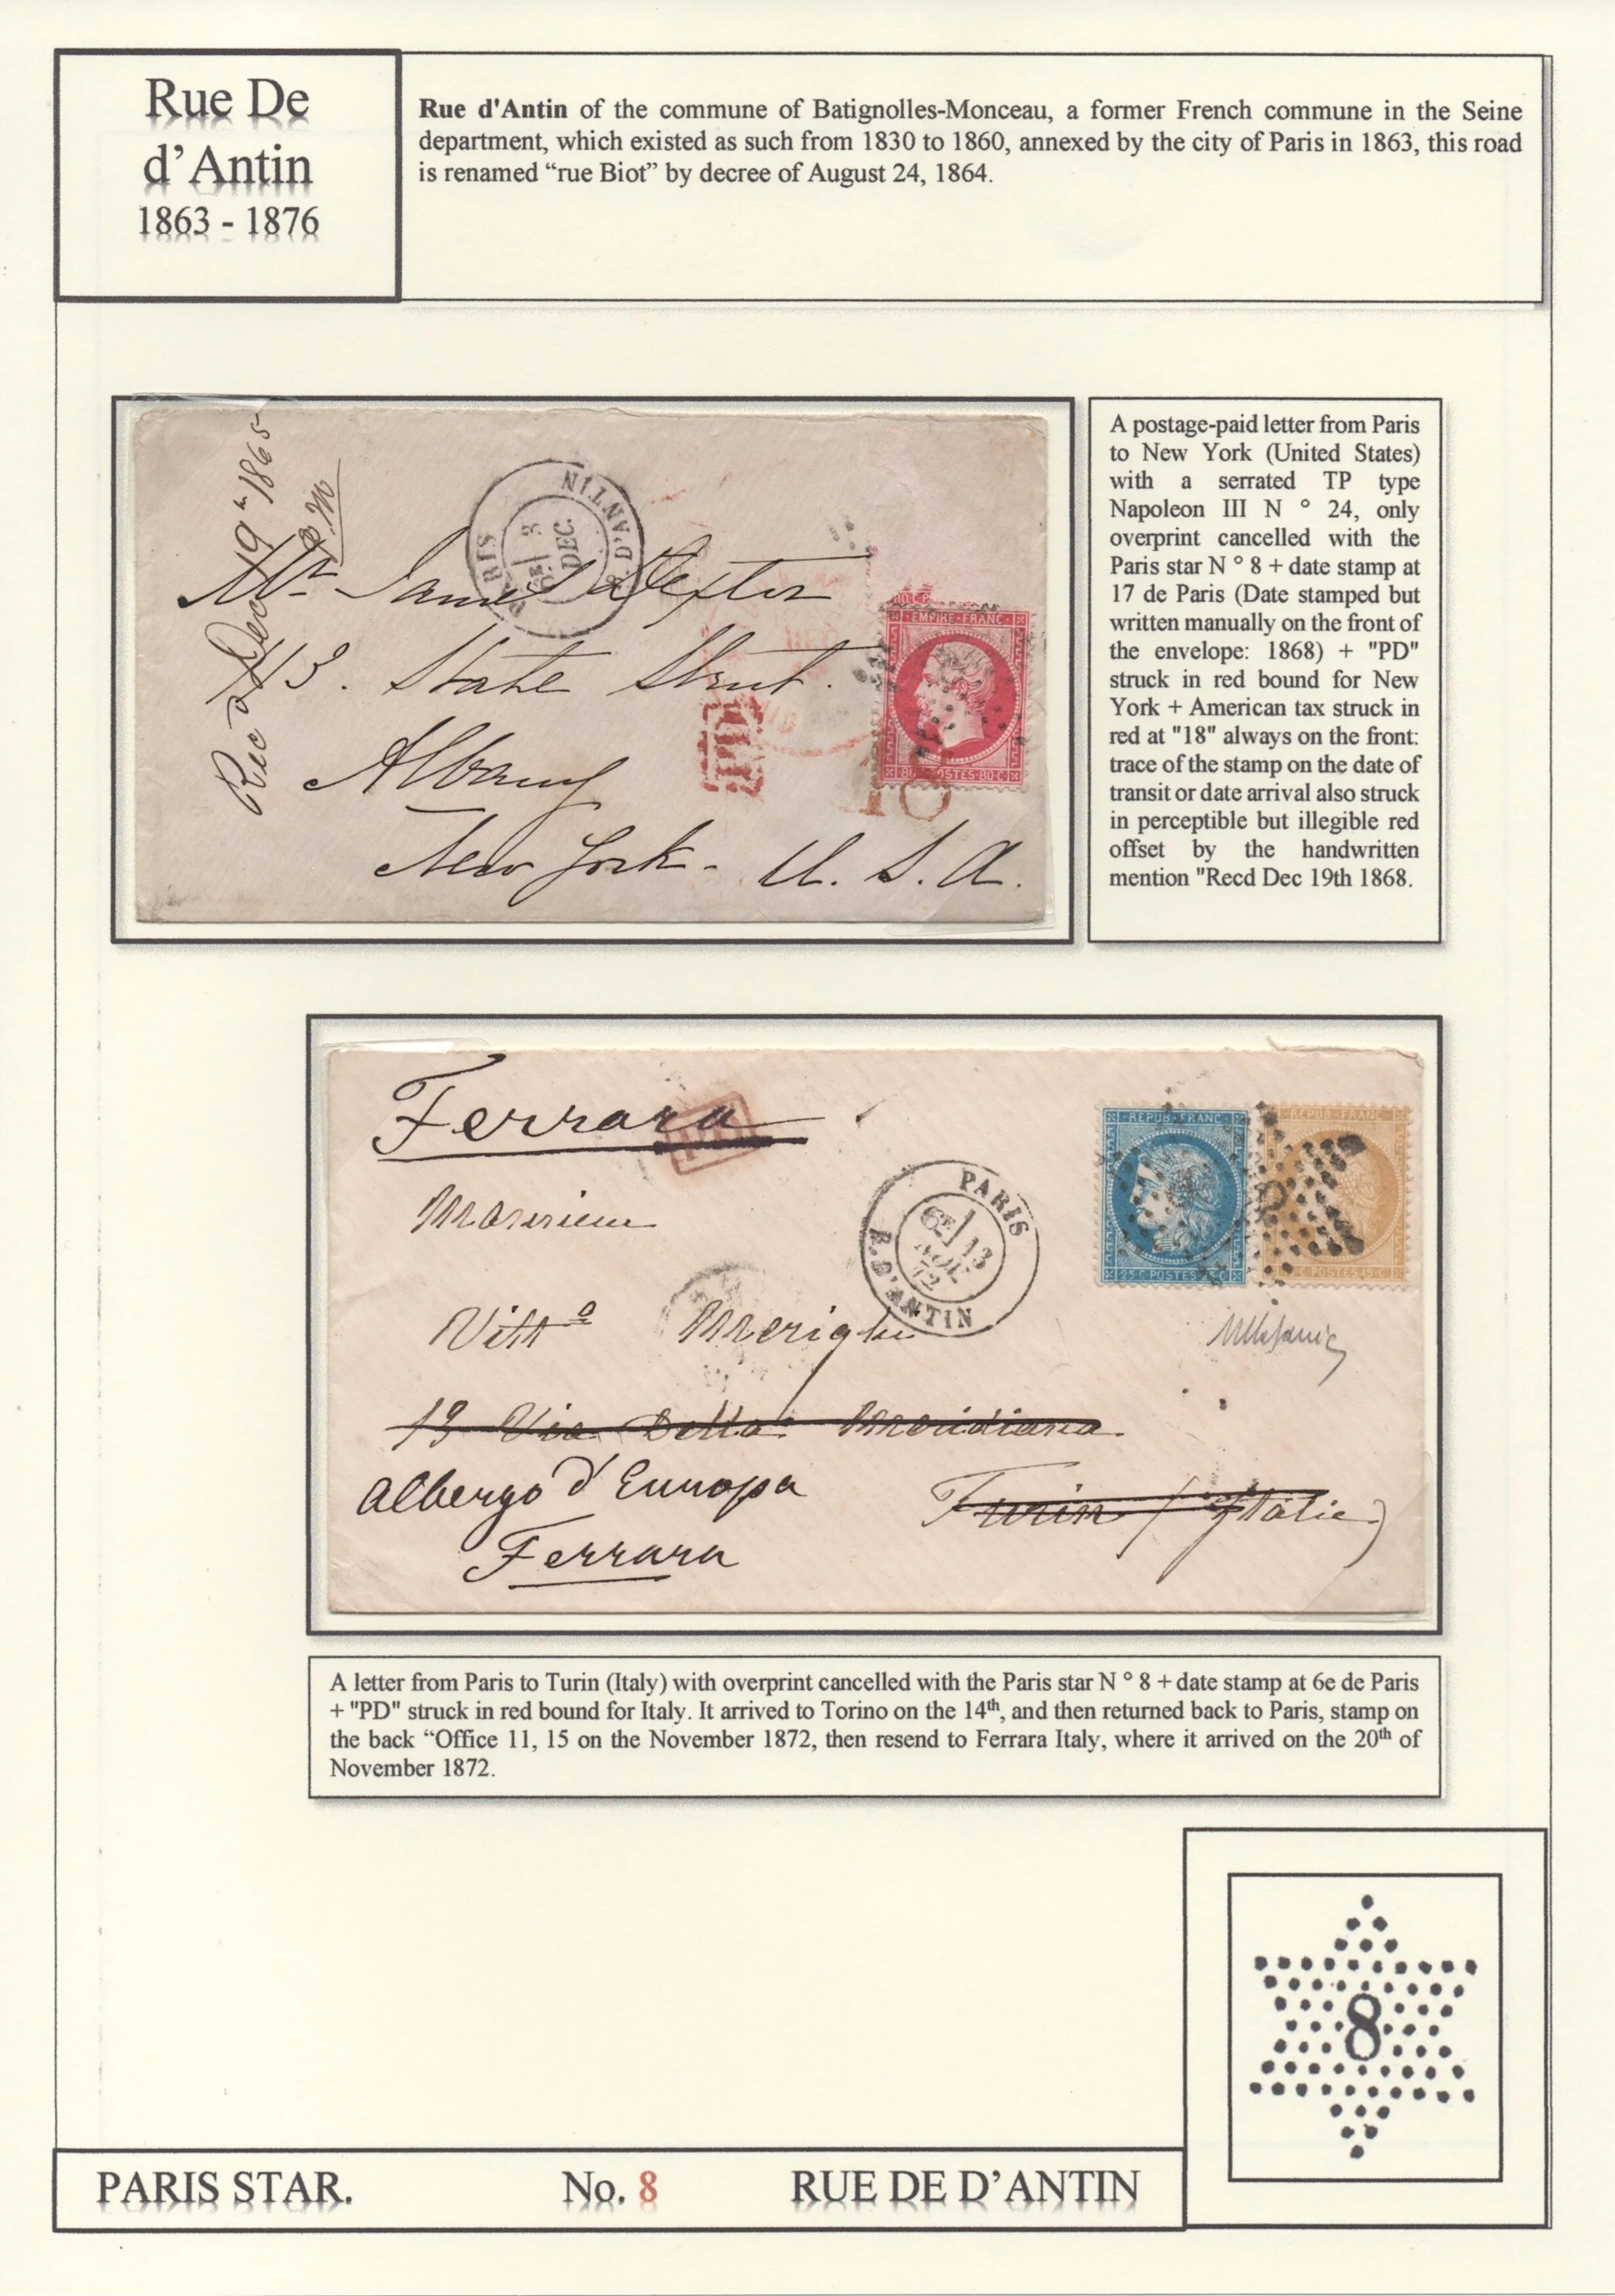 Rue De
d’Antin
1863 - 1876
Rue d'Antin of the commune of Batignolles-Monceau, a former French commune in the Seine
department, which existed as such from 1830 to 1860, annexed by the city of Paris in 1863, this road
is renamed “rue Biot” by decree of August 24, 1864.
Rec'd Dec 19th 1865
P.M
PARIS R. D'ANTIN
6E 3
DEC.
Mr. James Dexter
13. State Street.
Albany
New York - U. S. A.
EMPIRE FRANC
80 POSTES 80 C
18
A postage-paid letter from Paris
to New York (United States)
with a serrated TP type
Napoleon III N ° 24, only
overprint cancelled with the
Paris star N ° 8 + date stamp at
17 de Paris (Date stamped but
written manually on the front of
the envelope: 1868) + "PD"
struck in red bound for New
York + American tax struck in
red at "18" always on the front:
trace of the stamp on the date of
transit or date arrival also struck
in perceptible but illegible red
offset by the handwritten
mention "Recd Dec 19th 1868.
Ferrara
PD
Monsieur
Vitt° Merighi
19 Via Della Meridiana
Turin (Italie)
Albergo d'Europa
Ferrara
PARIS
6E 13
NOV.
72
R. D'ANTIN
REPUB FRANC
25 C POSTES 25 C
REPUB FRANC
POSTES 15 C
A letter from Paris to Turin (Italy) with overprint cancelled with the Paris star N ° 8 + date stamp at 6e de Paris
+ "PD" struck in red bound for Italy. It arrived to Torino on the 14th, and then returned back to Paris, stamp on
the back “Office 11, 15 on the November 1872, then resend to Ferrara Italy, where it arrived on the 20th of
November 1872.
8
PARIS STAR. No. 8 RUE DE D’ANTIN